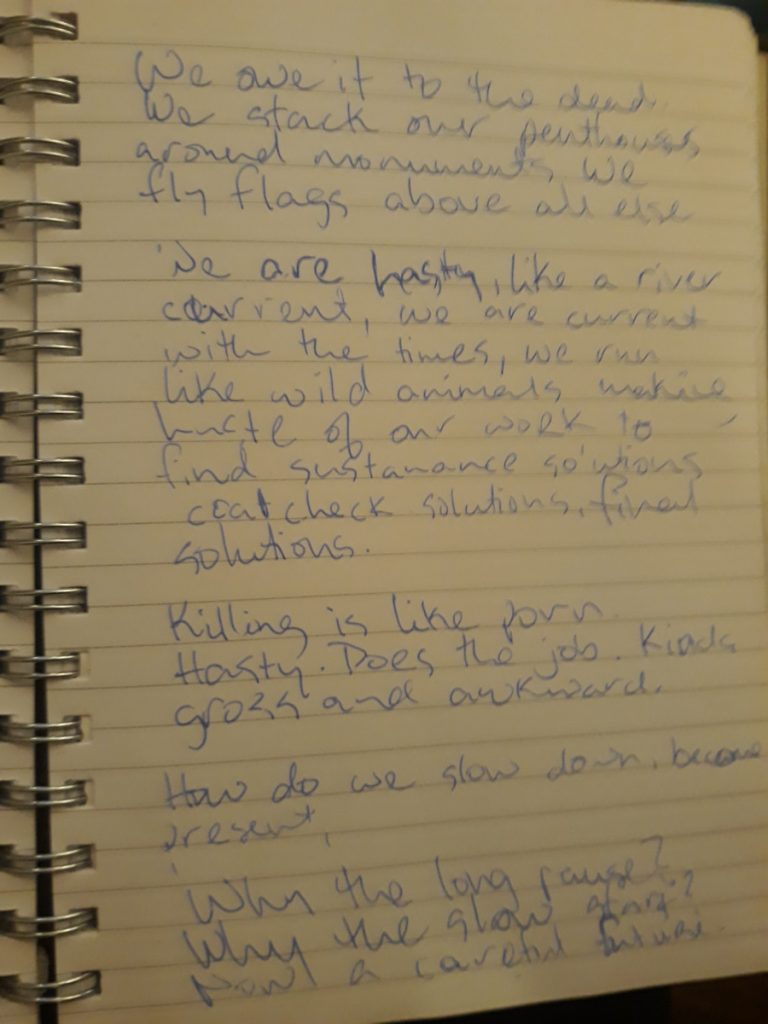 We owe it to the dead.
We stack our penthouses
around monuments, we
fly flags above all else
We are hasty, like a river
current, we are current
with the times, we run
like wild animals making
haste of our work to
find sustanance solutions
coat check solutions, final
solutions.
Killing is like porn.
Hasty. Does the job. Kinda
gross and awkward.
How do we slow down, become
present,
Why the long pause?
Why the slow start?
Now! a careful future.